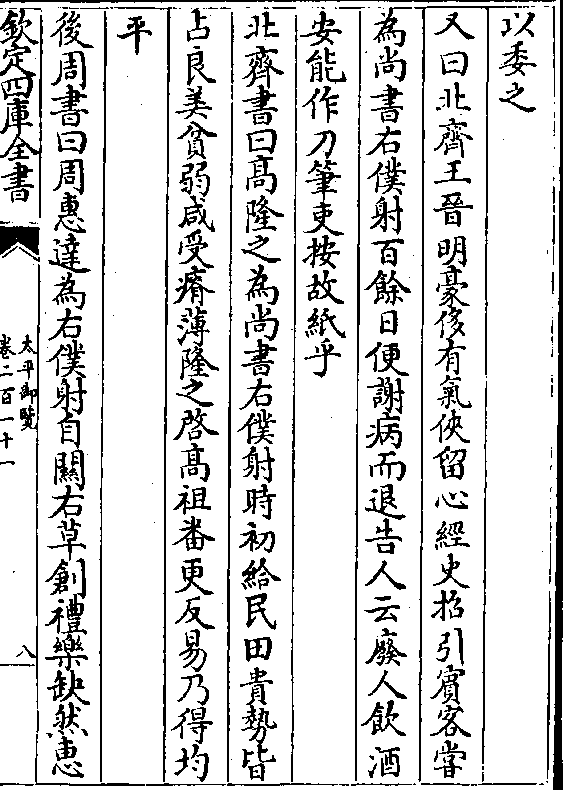 以委之
又曰北齊王晉明豪侈有氣俠留心經史招引賓客嘗
為尚書右僕射百餘日便謝病而退告人云廢人飲酒
安能作刀筆吏按故紙乎
北齊書曰髙隆之為尚書右僕射時初給民田貴勢皆
占良美貧弱咸受瘠薄隆之啓髙祖番更反易乃得均
平
後周書曰周惠達為右僕射自關右草創禮樂缺然惠
欽定四庫全書
太平御覽
卷二百一十一
八